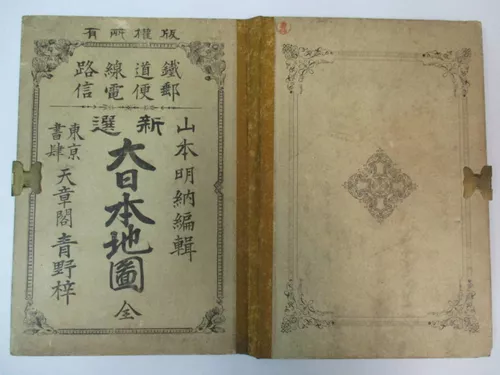 版權所有
鐵道線路
郵便電信
新選
山本明納編輯
大日本地圖 全
東京
書肆
天章閣青野梓